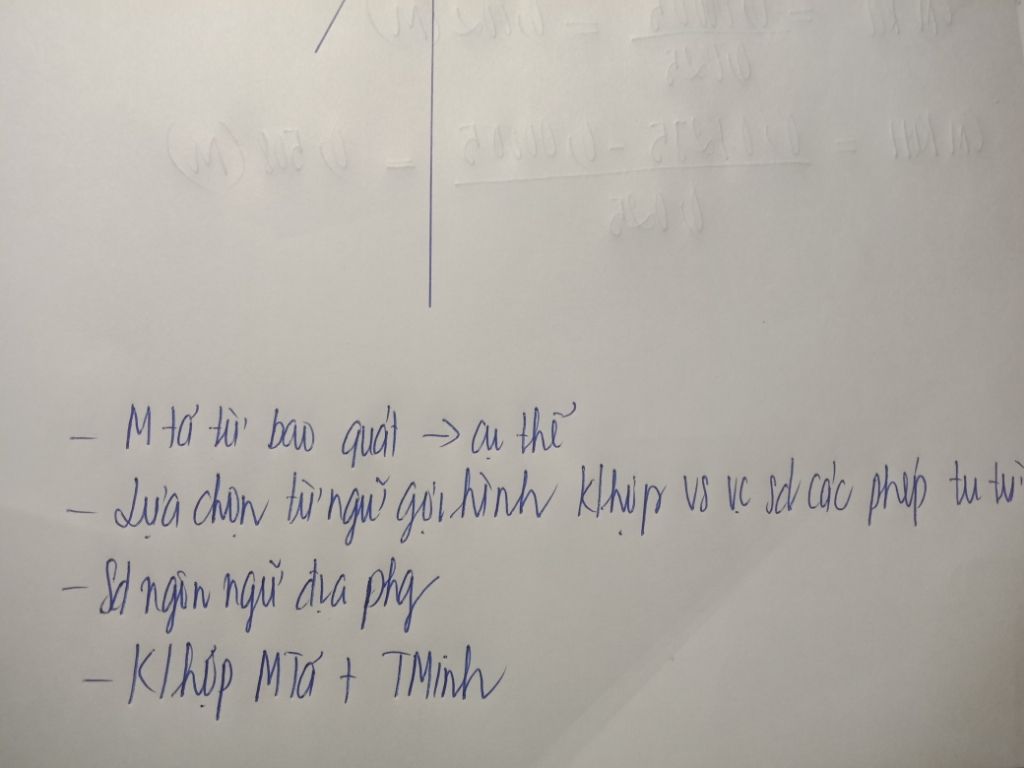 - M tả từ bao quát → cụ thể
- Lựa chọn từ ngữ gợi hình K/hợp vs vc sd các phép tu từ
- Sd ngôn ngữ địa phg
- K/hợp MTả + TMinh